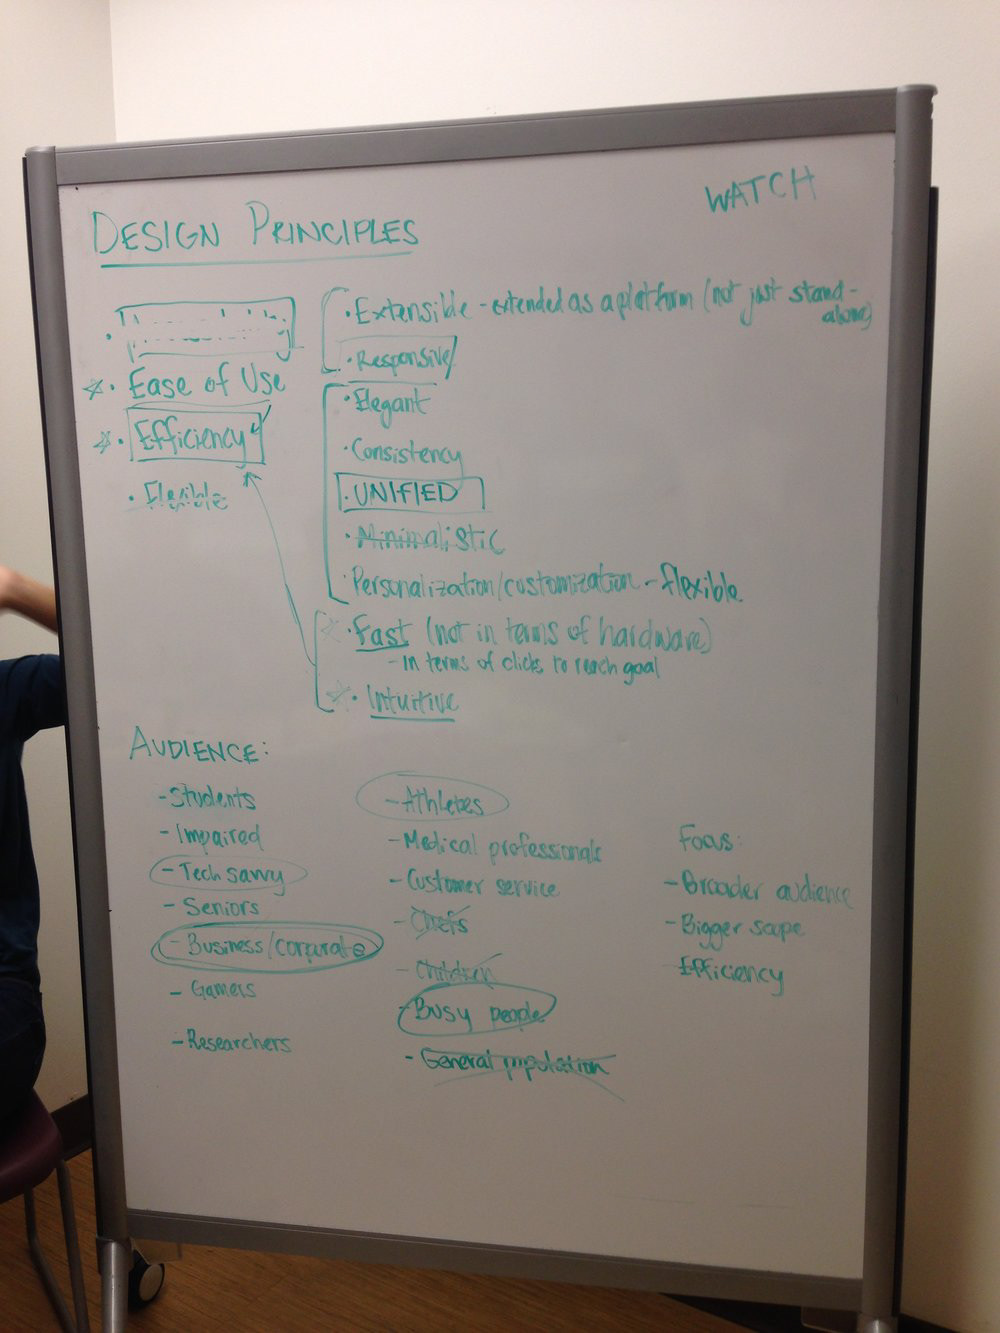 WATCH
DESIGN PRINCIPLES
• Ease of Use
• Efficiency
• Flexible
• Extensible - extended as a platform (not just stand-
alone)
• Responsive
• Elegant
• Consistency
• UNIFIED
• Minimalistic
• Personalization/customization - flexible
• Fast (not in terms of hardware)
- in terms of clicks to reach goal
• Intuitive
AUDIENCE:
- Students
- Impaired
- Tech savvy
- Seniors
- Business/corporate
- Gamers
- Researchers
- Athletes
- Medical professionals
- Customer service
- Chefs
- Children
- Busy people
- General population
Focus:
- Broader audience
- Bigger scope
- Efficiency